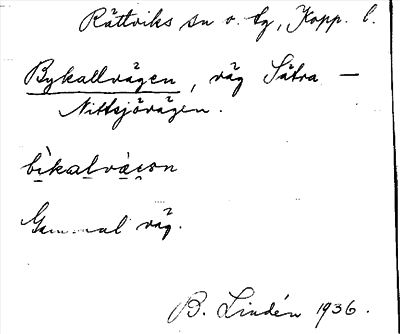 Rättviks sn o. tg, Kopp. l.
Bykallvägen, väg Sätra —
Nittsjövägen.
Gammal väg.
B. Lindén 1936.